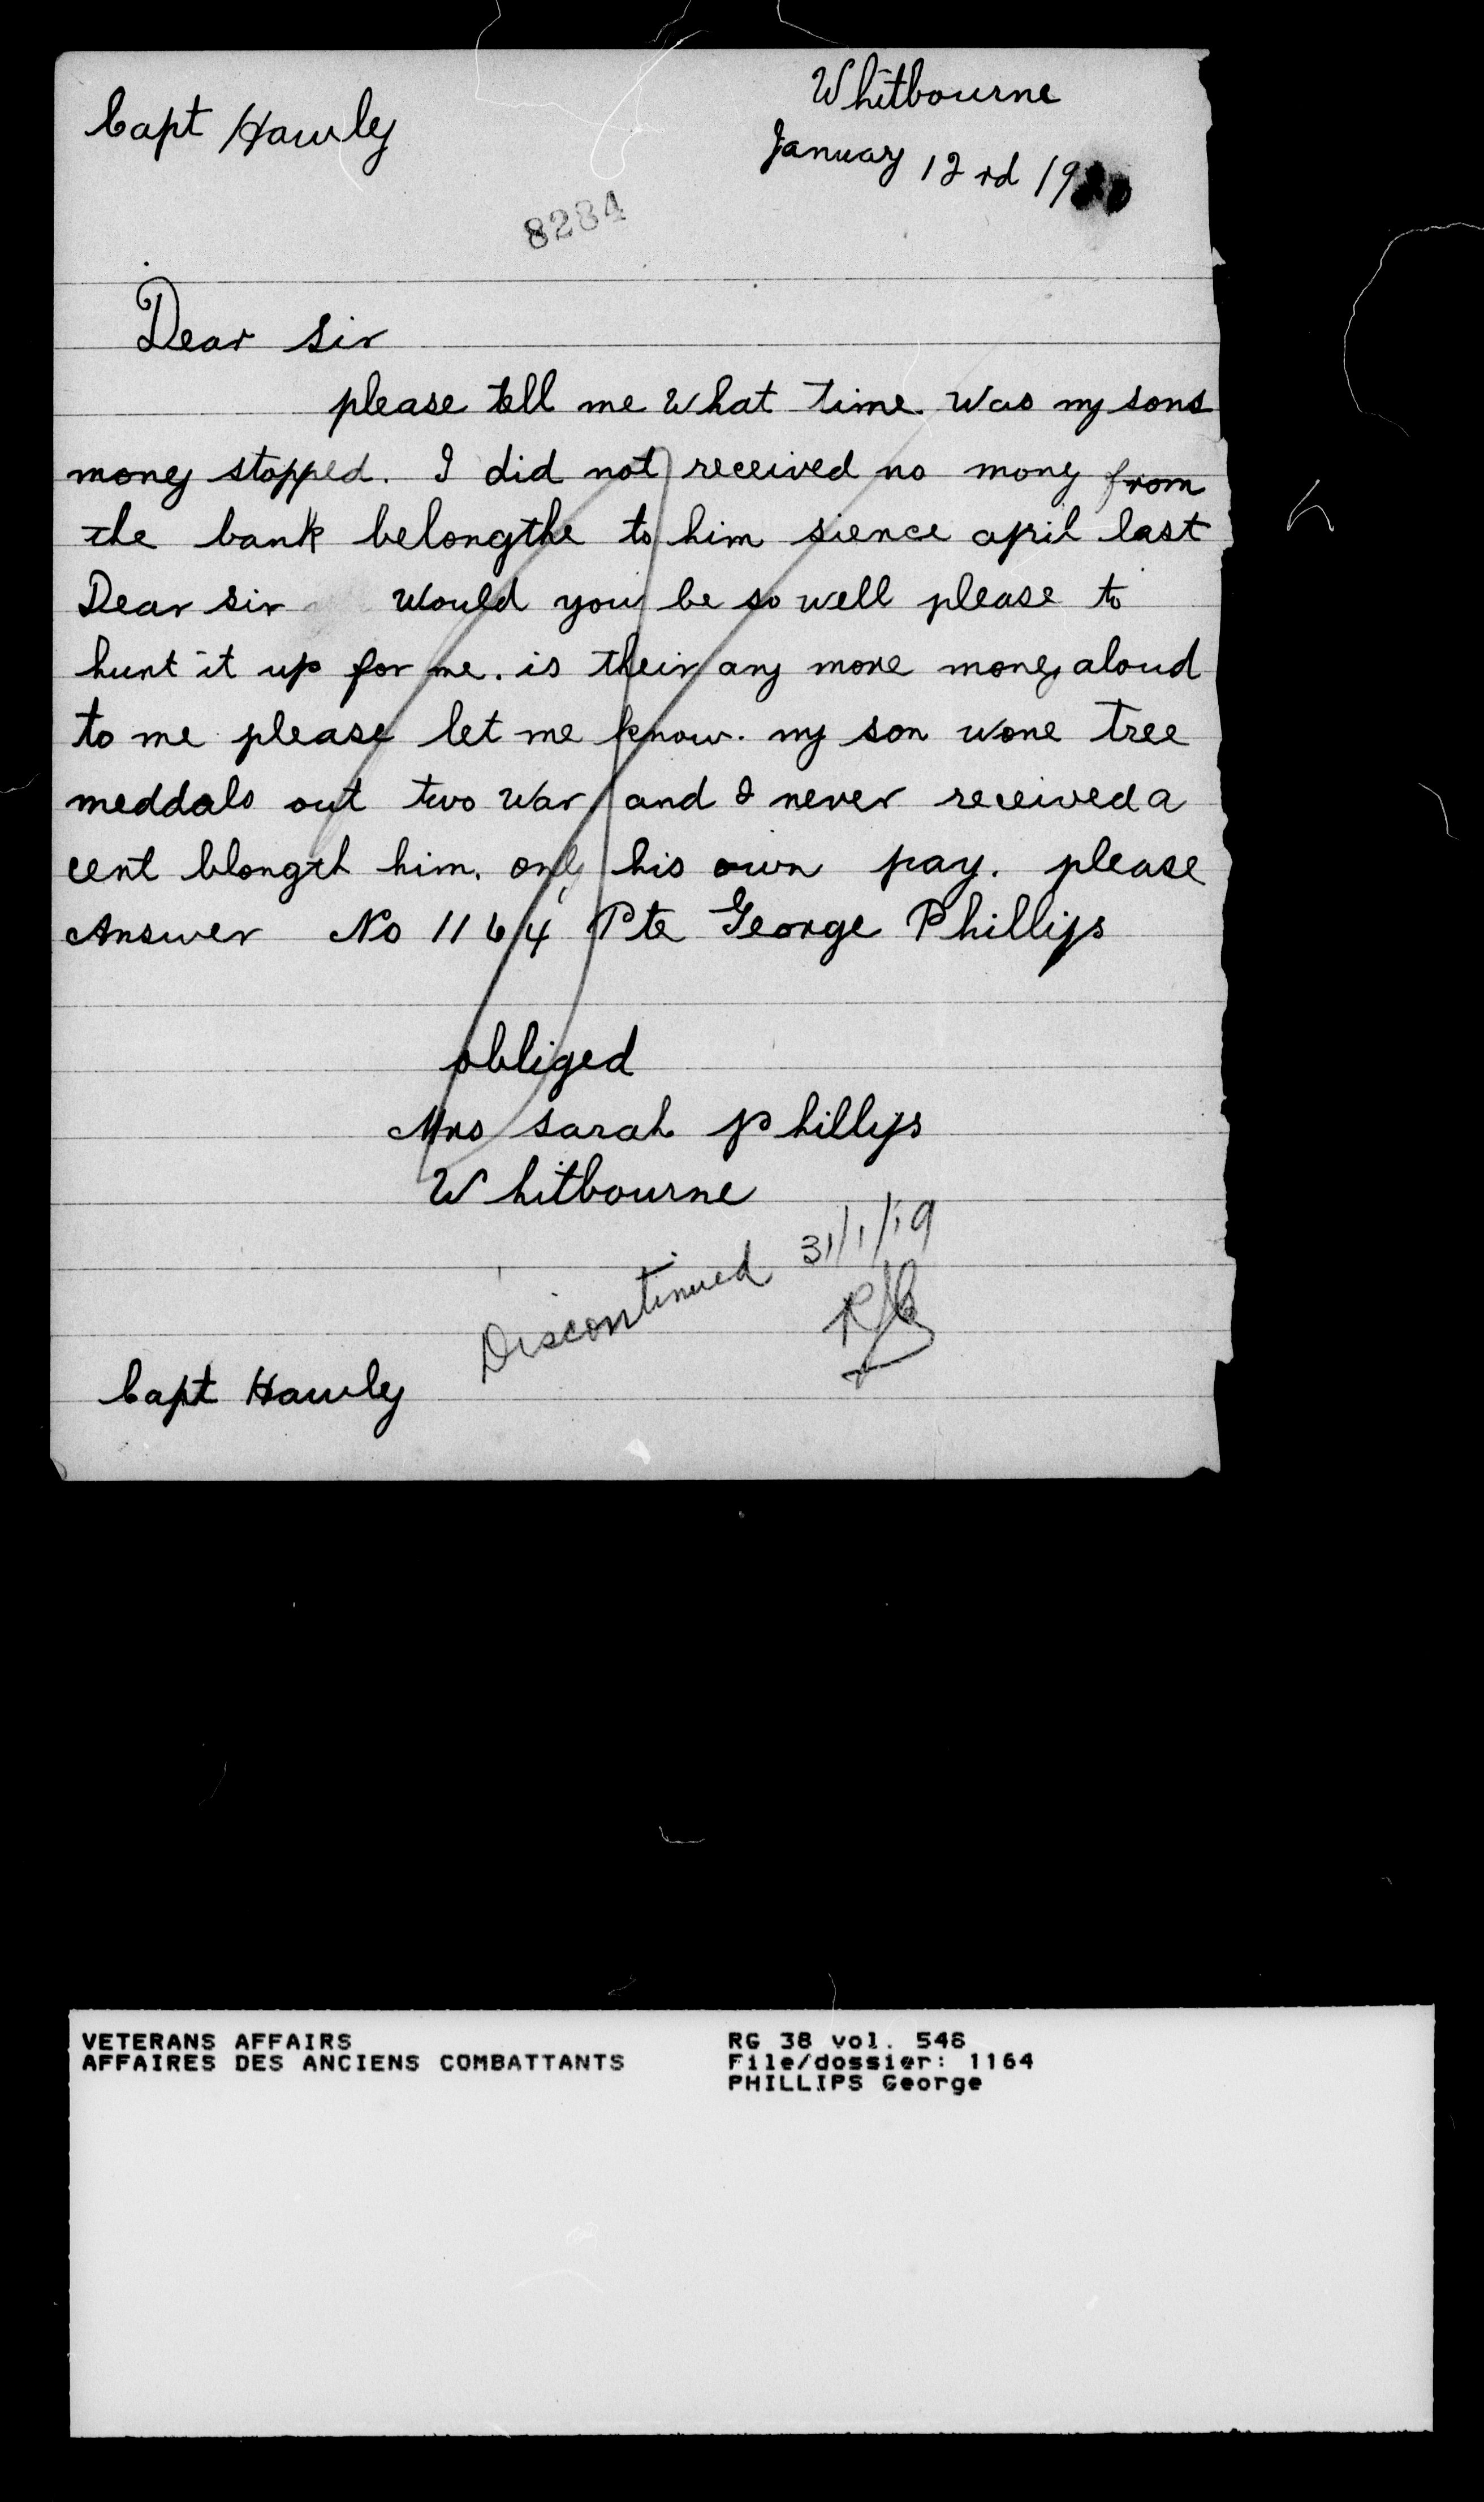 Capt Hawly
Whitbourne
January 12 rd 19
8284
Dear sir
please tell me What time. Was my sons
money stopped. I did not received no mony from
the bank belongthe to him sience april last
Dear sir Would you be so well please to
hunt it up for me. is their any more money aloud
to me please let me know. my son wone tree
meddals out two War and I never received a
cent blongth him. only his own pay. please
Answer No 1164 Pte George Phillips
obliged
Mrs Sarah Phillips
Whitbourne
Discontinued 31/1/19
Capt Hawly
VETERANS AFFAIRS
AFFAIRES DES ANCIENS COMBATTANTS
RG 38 vol. 546
File/dossier: 1164
PHILLIPS George